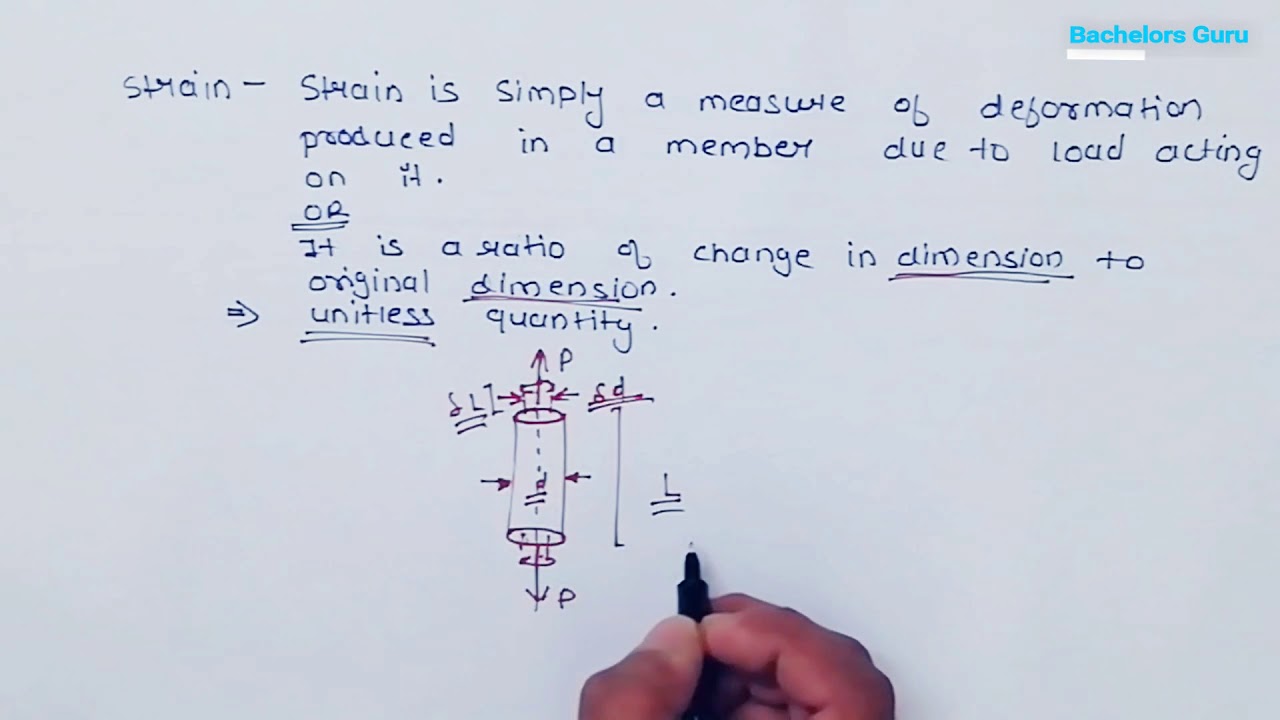 Bachelors Guru
Strain - Strain is simply a measure of deformation
produced in a member due to load acting
on it.
OR
It is a ratio of change in dimension to
original dimension.
⇒ unitless quantity.
P
δL
δd
d
L
P